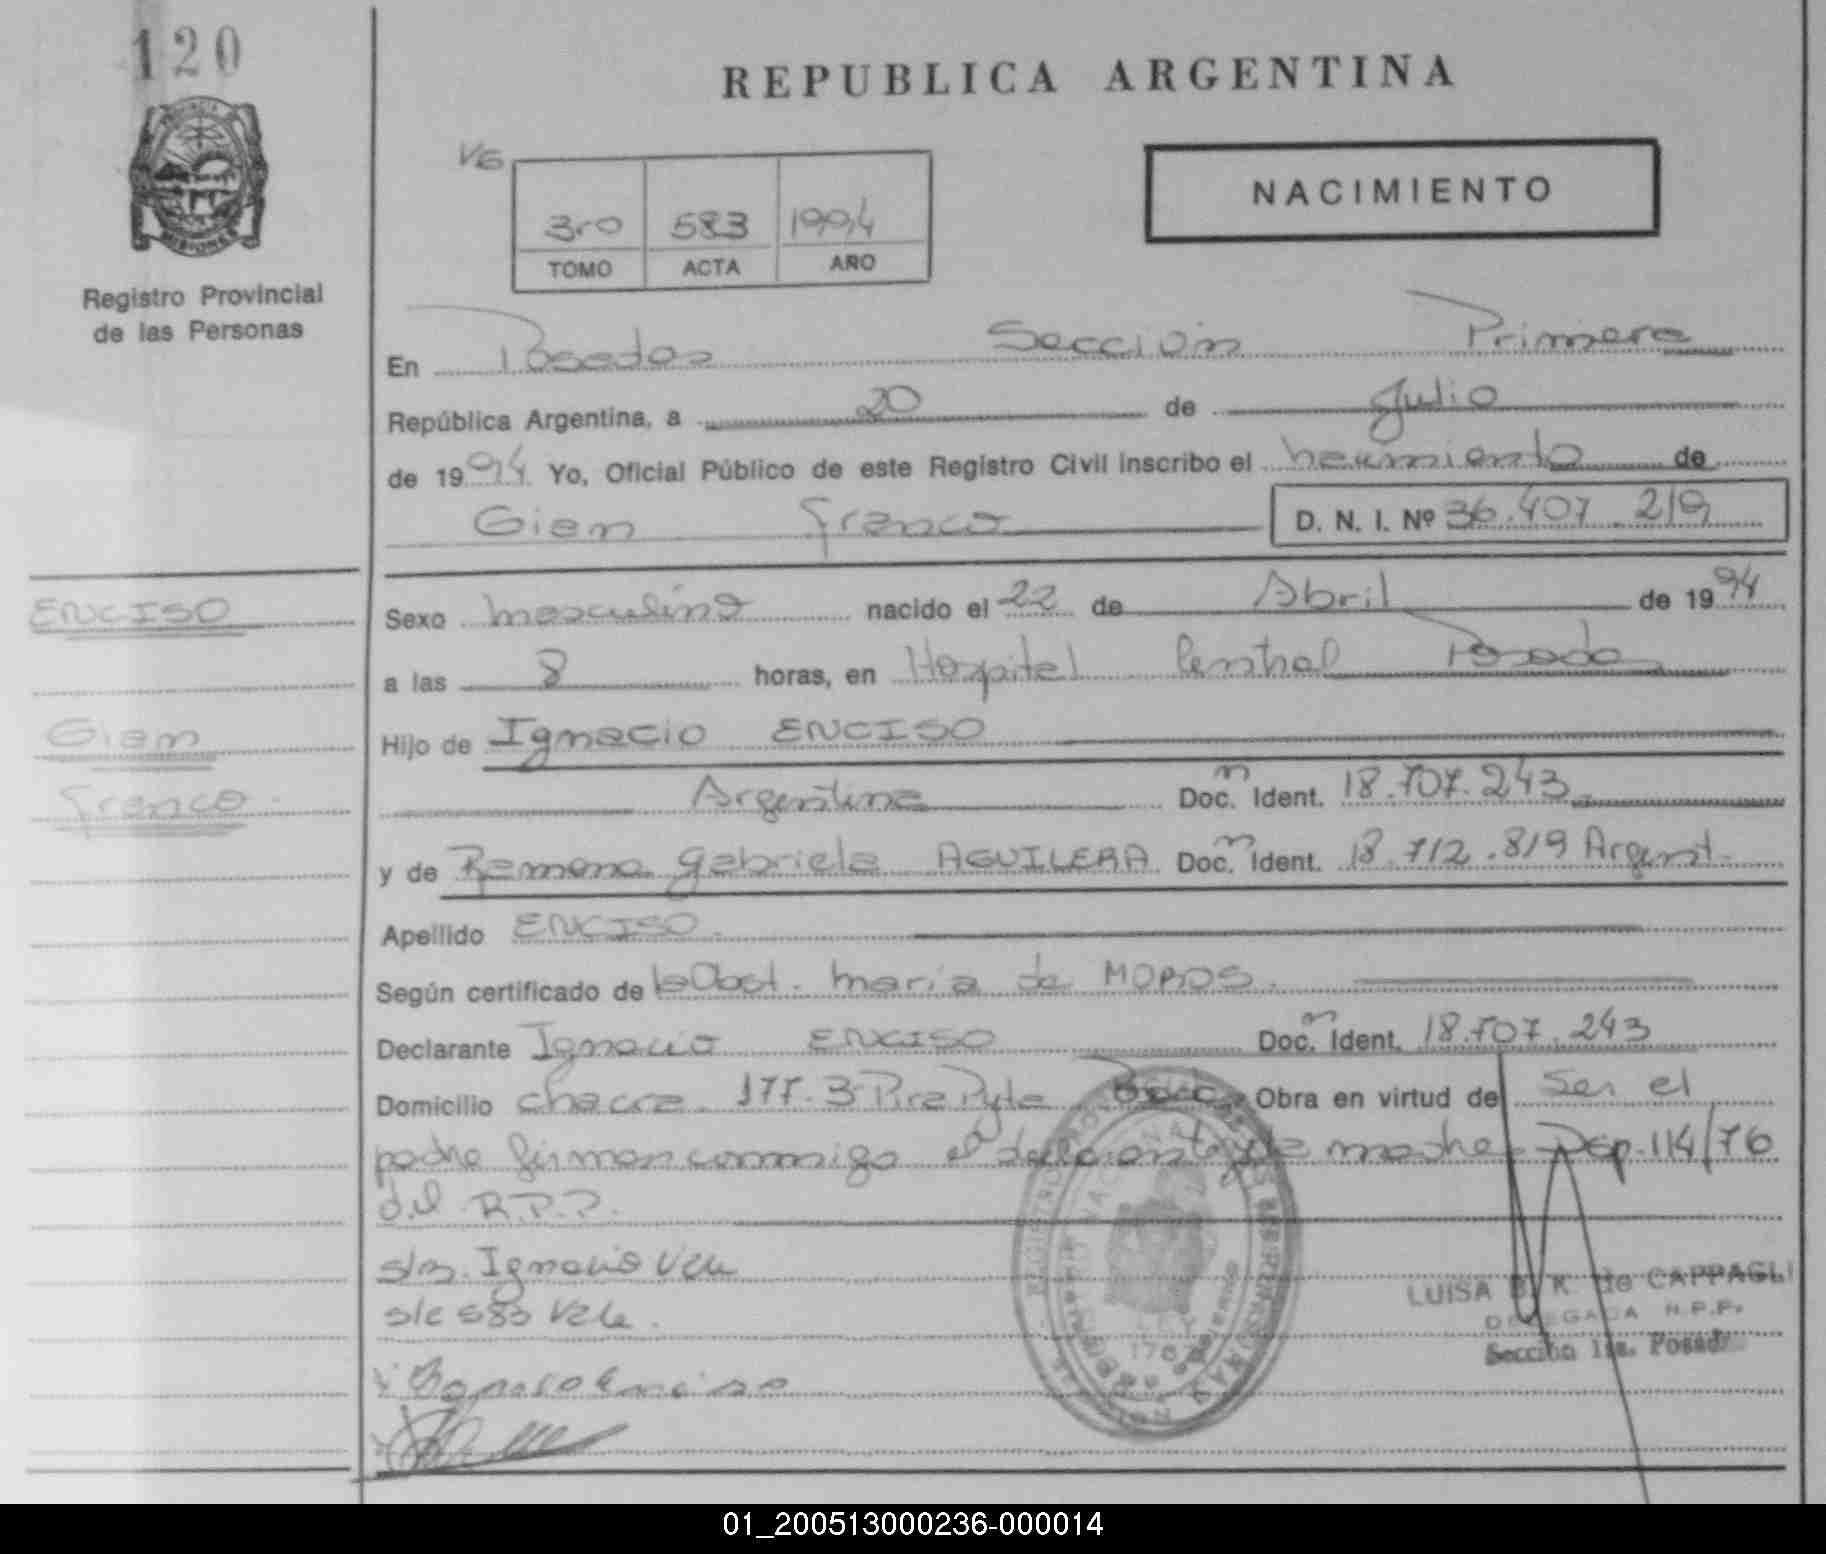 120
REPUBLICA ARGENTINA
NACIMIENTO
VE
3ro 583 1994
TOMO ACTA AÑO
PROVINCIA
MISIONES
Registro Provincial
de las Personas
En Posadas Sección Primera
República Argentina, a 20 de Julio
de 1994 Yo, Oficial Público de este Registro Civil inscribo el nacimiento de
Gian Franco D. N. I. Nº 36.407.219
ENCISO
Sexo masculino nacido el 22 de Abril de 1994
a las 8 horas, en Hospital Central Posadas
Gian
Hijo de Ignacio ENCISO
Franco
Argentina Doc. n Ident. 18.707.243
y de Ramona Gabriela AGUILERA Doc. n Ident. 18.712.819 Argent.
Apellido ENCISO.
Según certificado de la Obst. maria de MOROS.
Declarante Ignacio ENCISO Doc. n Ident. 18.707.243
Domicilio chacra 177-3 Pira Pyta Obra en virtud de ser el
padre firman conmigo el declarante y la madre Disp. 114/76
del R.P.P.
s/r. Ignacio Vale
s/c 583 Vale.
LUISA B. K. de CAPPAGLI
DELEGADA R.P.P.
Sección 1ra. Posadas
Ignacio Enciso
01_200513000236-000014